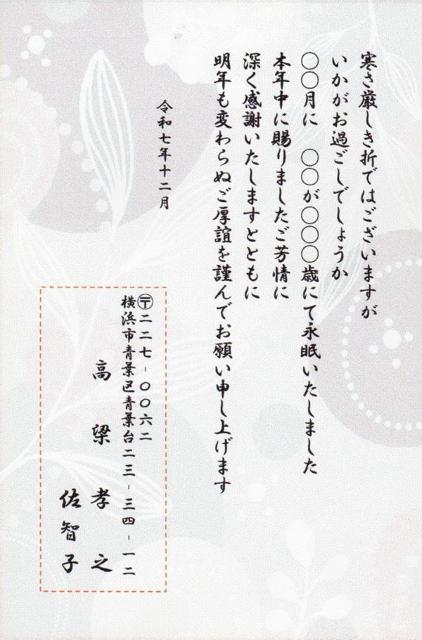 寒さ厳しき折ではございますが
いかがお過ごしでしょうか
〇〇月に　〇〇が〇〇〇歳にて永眠いたしました
本年中に賜りましたご芳情に
深く感謝いたしますとともに
明年も変わらぬご厚誼を謹んでお願い申し上げます
令和七年十二月
〒二二七-〇〇六二
横浜市青葉区青葉台二三-三四-一二
高梁　孝之
佐智子